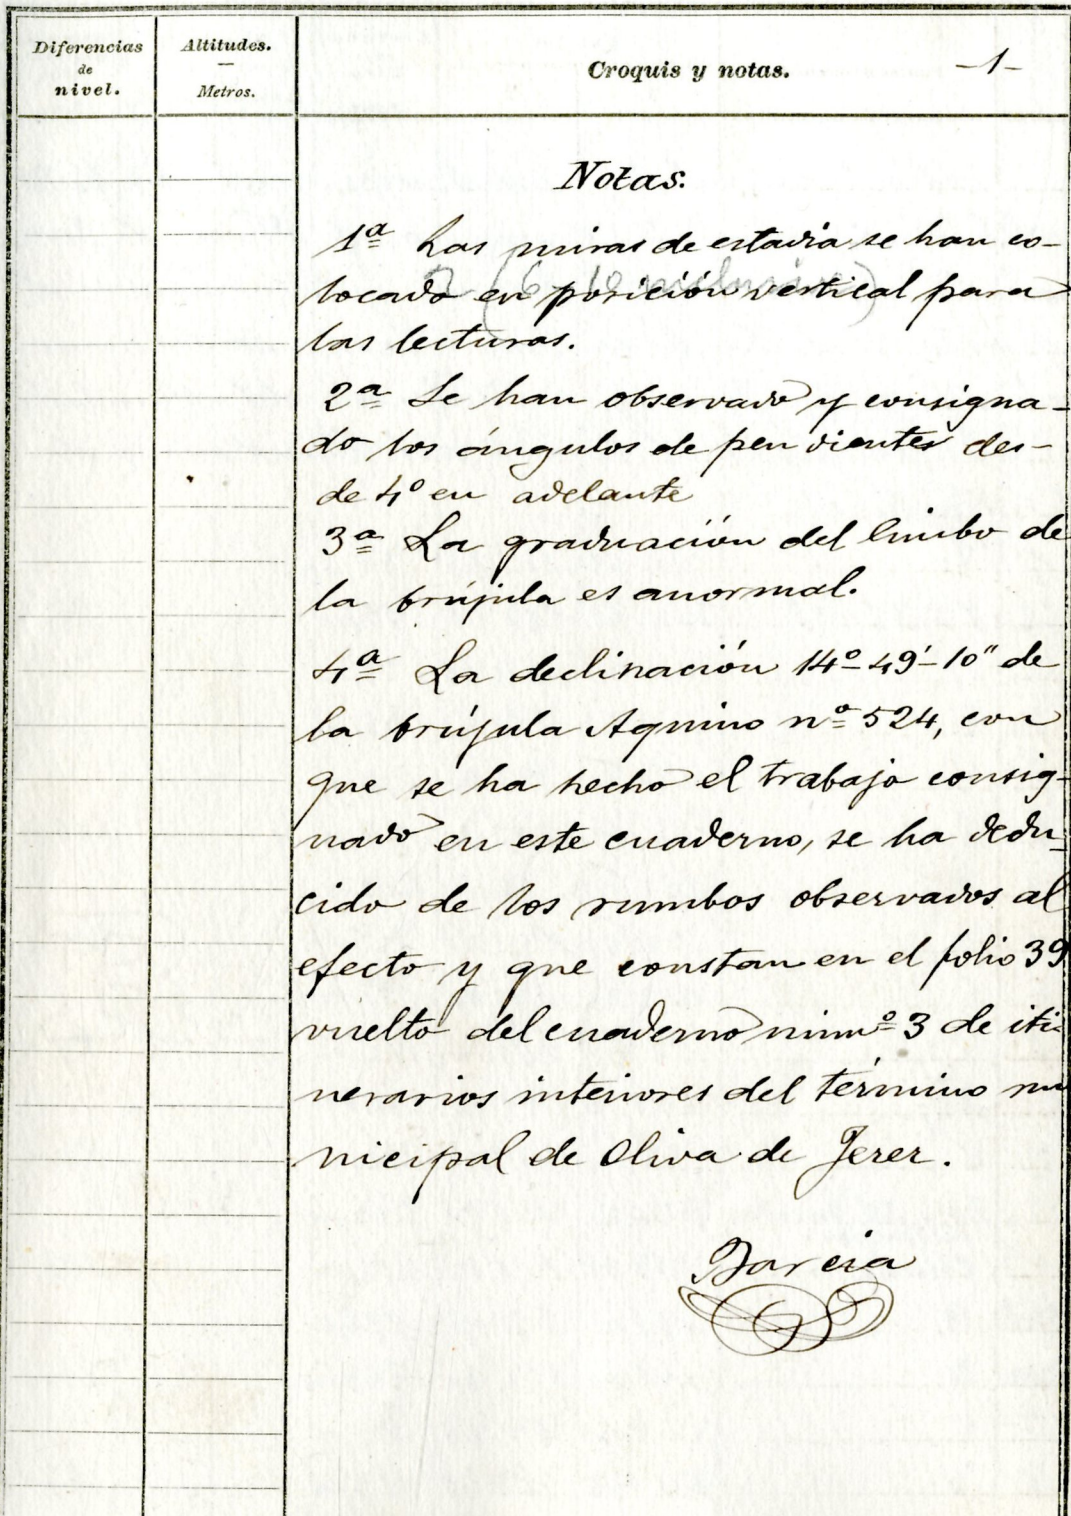 Diferencias
de
nivel.
Altitudes.
Metros.
Croquis y notas.
-1-
Notas.
1ª Las miras de estadia se han co-
locado en posición vertical para
las lecturas.
2ª Se han observado y consigna-
do los ángulos de pendientes des-
de 4º en adelante
3ª La graduación del limbo de
la brújula es anormal.
4ª La declinación 14º-49'-10" de
la brújula Aquino nº 524, con
que se ha hecho el trabajo consig-
nado en este cuaderno, se ha dedu-
cido de los rumbos observados al
efecto y que constan en el folio 39
vuelto del cuaderno numº 3 de iti-
nerarios interiores del término mu
nicipal de Oliva de Jerez.